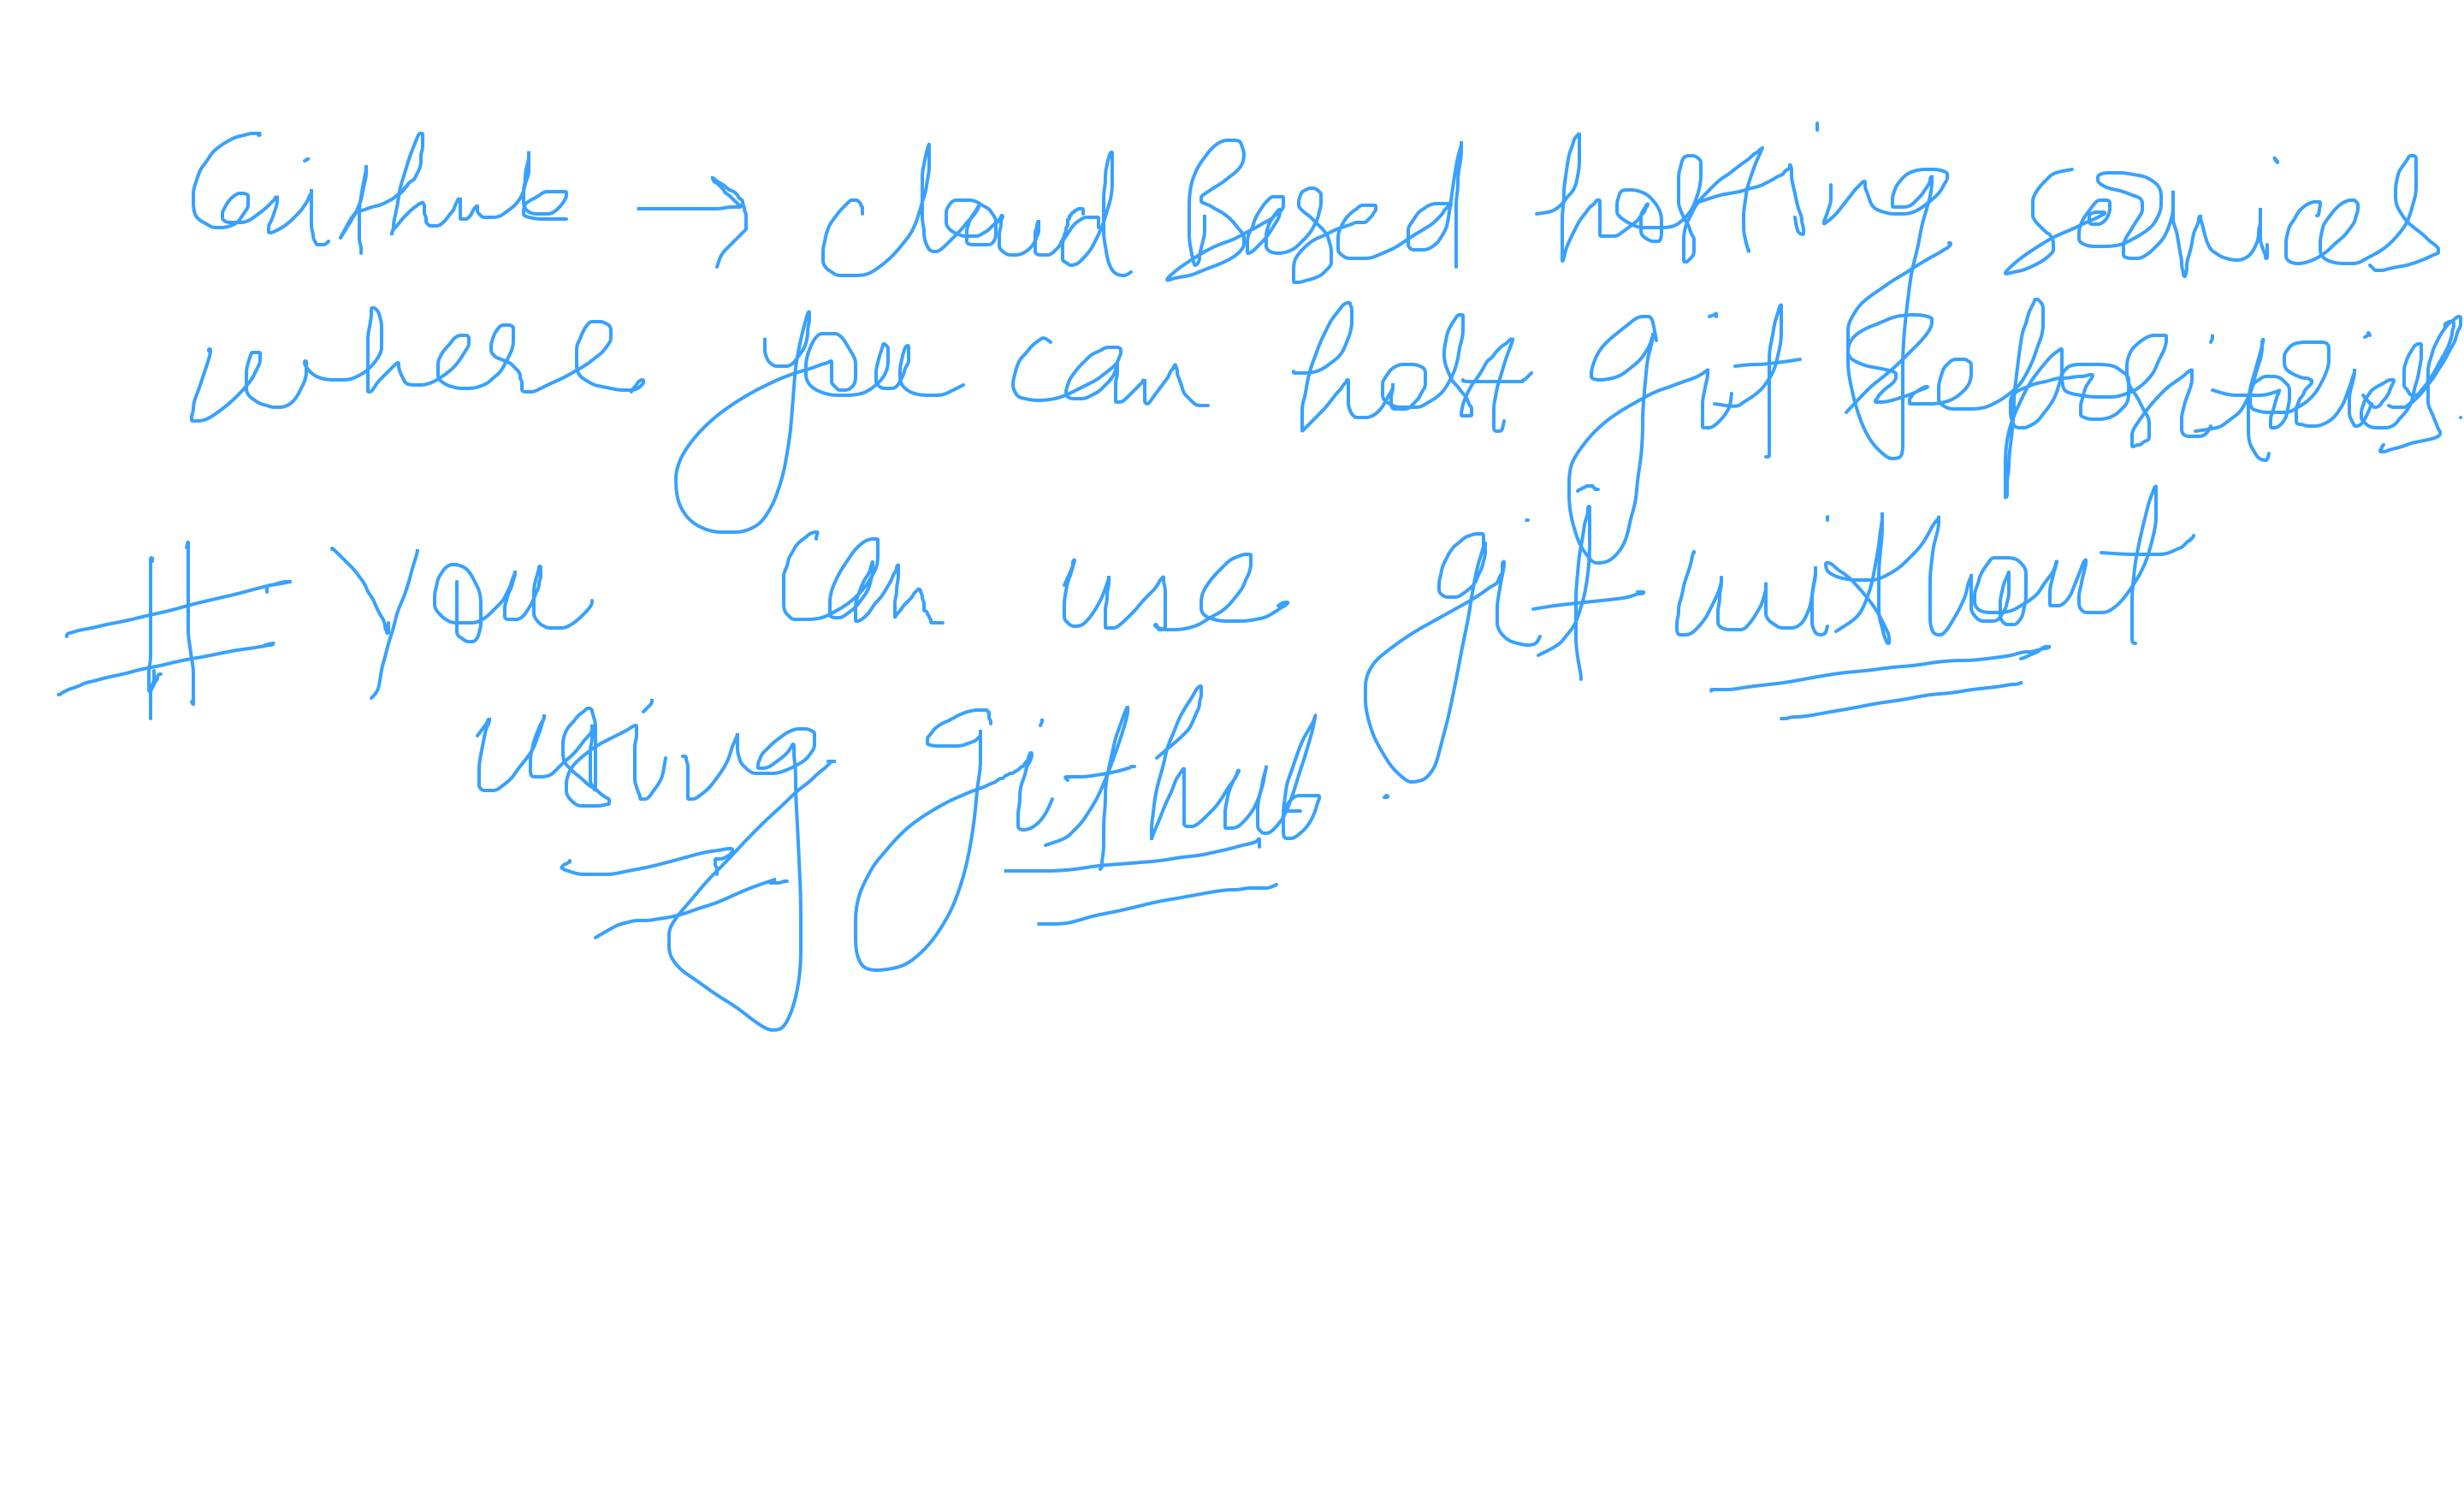 Github → cloud Based hosting services
where you can host git Repositories.
# You can use git without
using github.